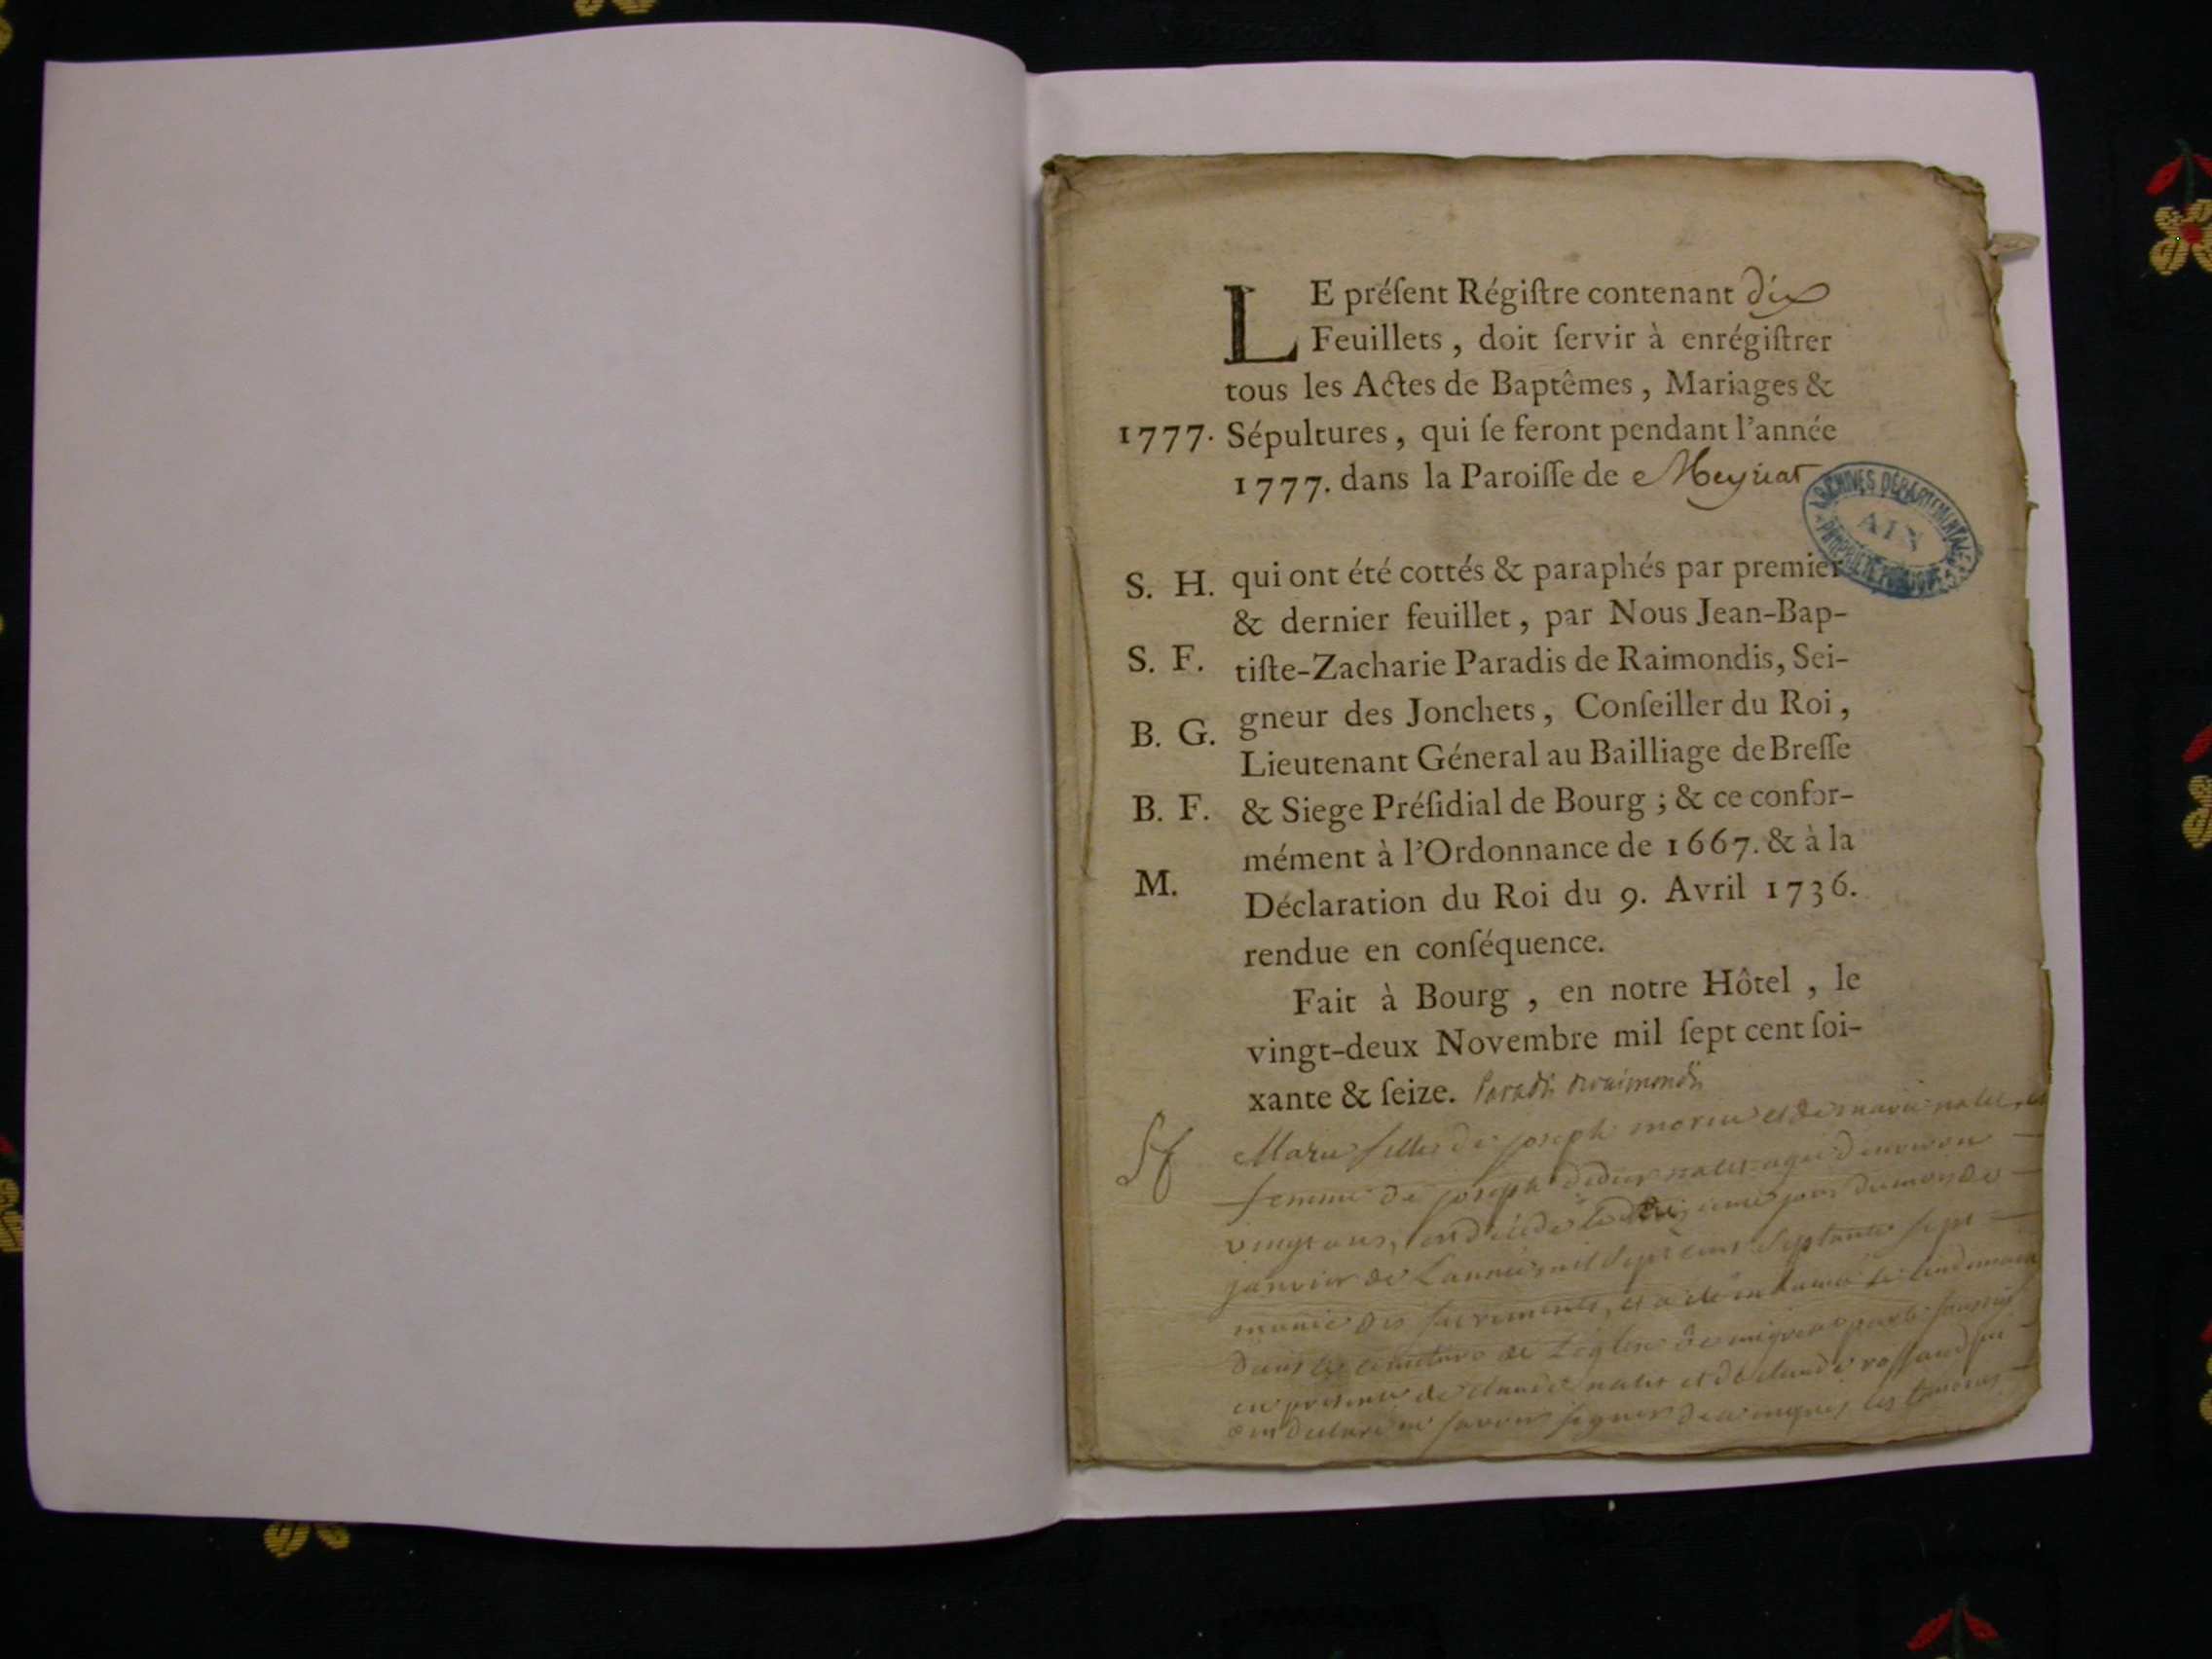 LE préſent Régiſtre contenant dix
Feuillets, doit ſervir à enrégiſtrer
tous les Actes de Baptêmes, Mariages &
1777. Sépultures, qui ſe feront pendant l'année
1777. dans la Paroiſſe de Meyriat
ARCHIVES DÉPARTEMENTALES
AIN
PROPRIÉTÉ PUBLIQUE
S. H. qui ont été cottés & paraphés par premier
& dernier feuillet, par Nous Jean-Bap-
S. F. tiſte-Zacharie Paradis de Raimondis, Sei-
gneur des Jonchets, Conſeiller du Roi,
B. G.
Lieutenant Géneral au Bailliage de Breſſe
B. F. & Siege Préſidial de Bourg ; & ce confor-
mément à l'Ordonnance de 1667. & à la
M.
Déclaration du Roi du 9. Avril 1736.
rendue en conſéquence.
Fait à Bourg, en notre Hôtel, le
vingt-deux Novembre mil ſept cent ſoi-
xante & ſeize. Paradis
Sf Marie fille de joseph morin et de marie nalet, et
femme de joseph nalet agée denviron
vingt ans, est décédé le jour du mois de
janvier de Lannée mil sept cent septante sept
munie des sacrements, et a été inhumée le lendemain
dans le cimetiere de Leglise de par le
en presence de claude nalet et de claude
ont declaré ne savoir signer de ce enquis les temoins